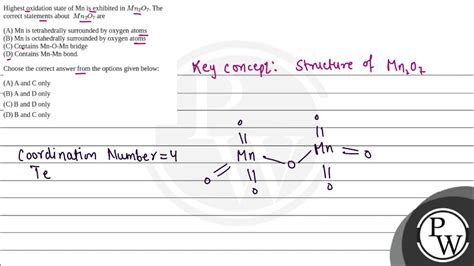 Highest oxidation state of Mn is exhibited in Mn₂O₇. The
correct statements about Mn₂O₇ are
(A) Mn is tetrahedrally surrounded by oxygen atoms
(B) Mn is octahedrally surrounded by oxygen atoms
(C) Contains Mn-O-Mn bridge
(D) Contains Mn-Mn bond.
Choose the correct answer from the options given below:
(A) A and C only
(B) A and D only
(C) B and D only
(D) B and C only
Key concept: Structure of Mn₂O₇
O O
Mn Mn
O O O
O O
Coordination Number = 4
Te
P
W
P
W